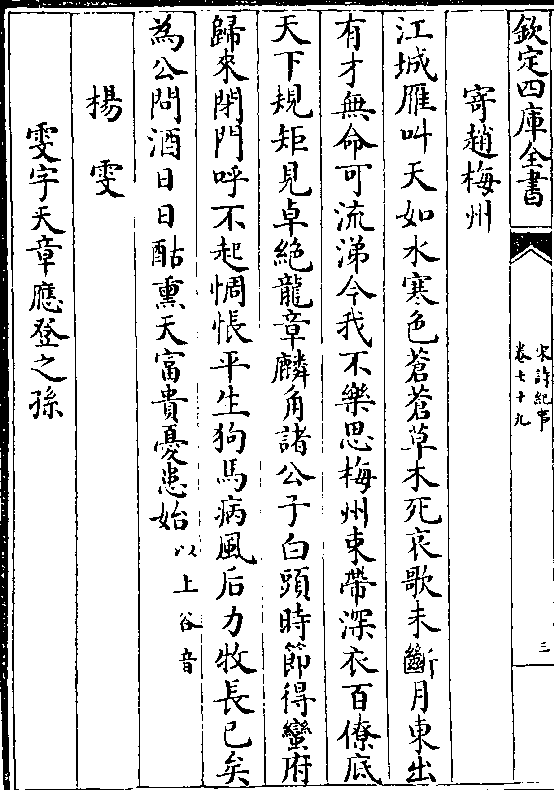 欽定四庫全書
宋詩紀事
卷七十九
三
寄趙梅州
江城雁叫天如水寒色蒼蒼草木死哀歌未斷月東出
有才無命可流涕今我不樂思梅州束帶深衣百僚底
天下規矩見卓絕龍章麟角諸公子白頭時節得蠻府
歸來閉門呼不起惆悵平生狗馬病風后力牧長已矣
為公問酒日日酤熏天富貴憂患始以上谷音
楊雯
雯字天章應登之孫